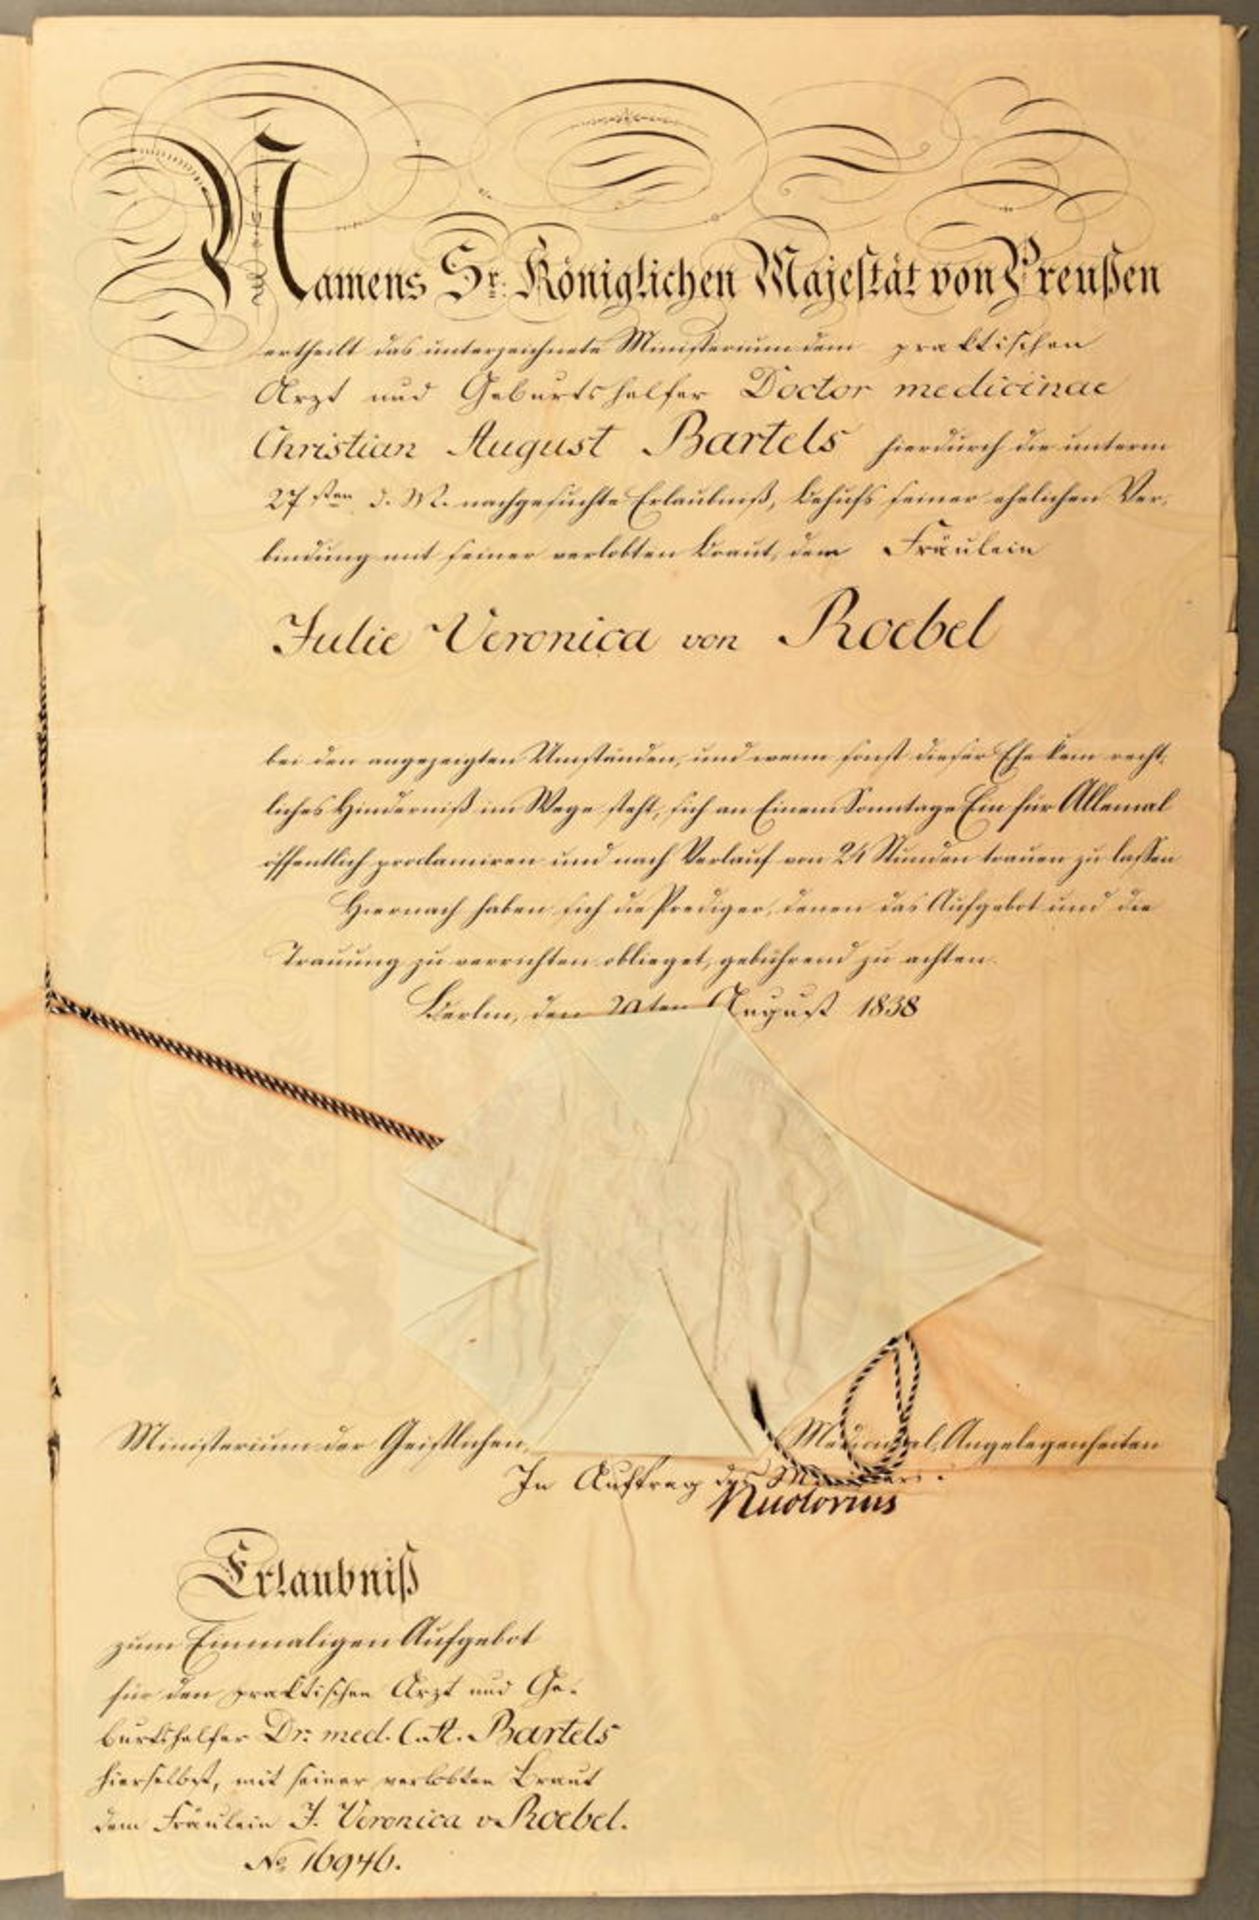 Namens Sr. Königlichen Majestät von Preußen
ertheilt das unterzeichnete Ministerium dem praktischen
Arzt und Geburtshelfer Doctor medicinae
Christian August Bartels hierdurch die unterm
27sten d. M. nachgesuchte Erlaubniß, behufs seiner ehelichen Ver-
bindung mit seiner verlobten Braut, dem Fräulein
Julie Veronica von Roebel
bei den angezeigten Umständen, und wenn sonst dieser Ehe kein recht-
liches Hinderniß im Wege steht, sich an Einem Sonntage Ein für Allemal
öffentlich proclamiren und nach Verlauf von 24 Stunden trauen zu lassen
Hiernach haben sich die Prediger, denen das Aufgebot und die
Trauung zu verrichten oblieget, gebührend zu achten.
Berlin, den August 1838
Ministerium der Geistlichen, Medicinal-Angelegenheiten
In Auftrag des
Erlaubniß
zum Einmaligen Aufgebot
für den praktischen Arzt und Ge-
burtshelfer Dr. med. C. A. Bartels
hierselbst, mit seiner verlobten Braut
dem Fräulein J. Veronica v. Roebel.
No. 16946.